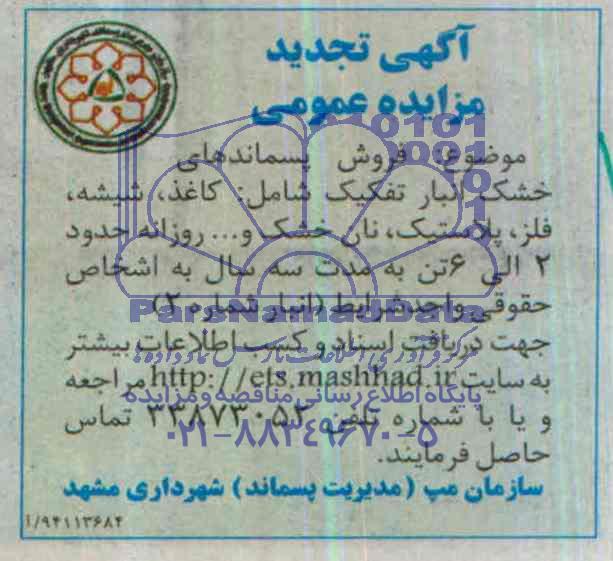 آگهی تجدید
مزایده عمومی
موضوع: فروش پسماندهای
خشک انبار تفکیک شامل: کاغذ، شیشه،
فلز، پلاستیک، نان خشک و... روزانه حدود
۲ الی ۶تن به مدت سه سال به اشخاص
حقوقی واجد شرایط (انبار شماره ۲)
جهت دریافت اسناد و کسب اطلاعات بیشتر
به سایت http://ets.mashhad.ir مراجعه
و یا با شماره تلفن ۳۳۸۷۳۰۵۲ تماس
حاصل فرمایند.
سازمان مپ (مدیریت پسماند) شهرداری مشهد
/۹۴۱۱۳۶۸۴
پایگاه اطلاع رسانی مناقصه و مزایده
۰۲۱-۸۸۳۴۹۶۷۰-۵